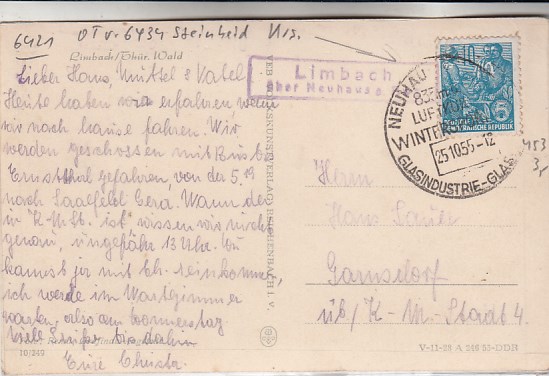 6421 OT v. 6434 Steinheid
Limbach/Thür. Wald
Lieber Hans, Muttel & Vatel
Heute haben wir erfahren wenn
wir nach hause fahren. Wir
werden geschossen mit Bus bis
Ernstthal gefahren, von da 5.19
nach Saalfeld Gera. Wann der
in K-M-St. ist wissen wir nicht
genau, ungefähr 13 Uhr. Du
kannst ja mit
ich werde im Wartezimmer
warten, also am Donnerstag
Viele Grüße, bis dahin
Eure Christa
10/349
VEB VOLKSKUNSTVERLAG REICHENBACH I. V.
Limbach
über Neuhaus a.
NEUHAUS
835 m
LUFTKUR
WINTER
25.10.55-12
GLASINDUSTRIE-GLAS
REPUBLIK
453
Herrn
Hans Sauer
Garnsdorf
üb/K-M-Stadt 4
V-11-28 A DDR